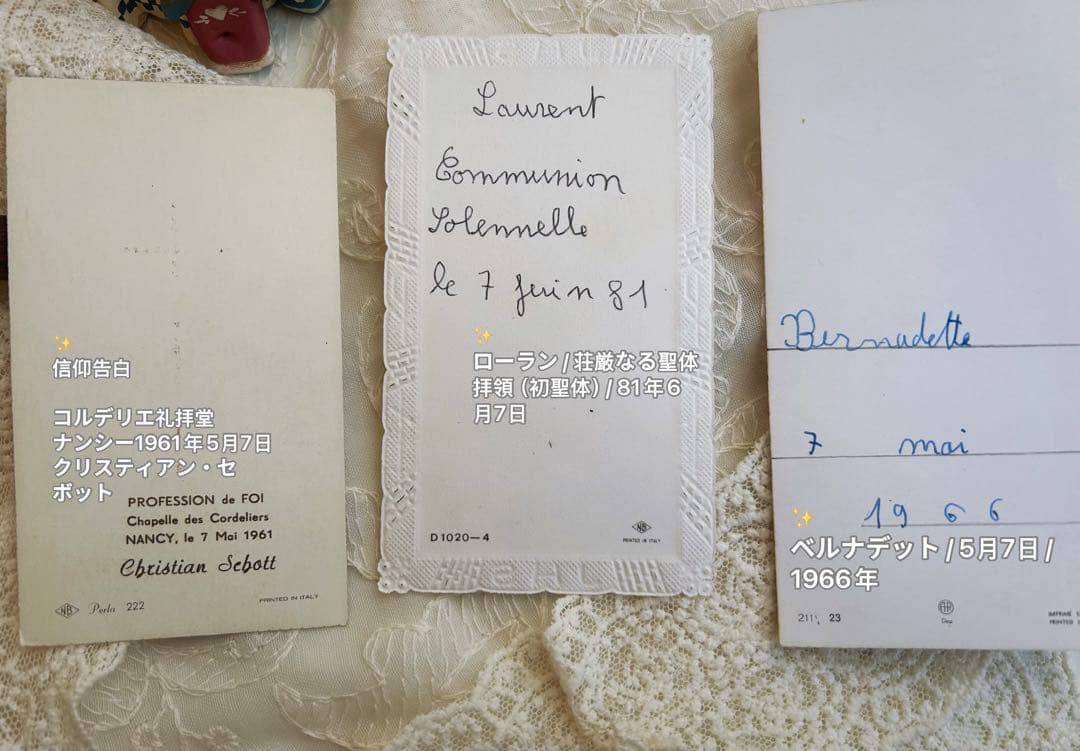 ✨
信仰告白
コルデリエ礼拝堂
ナンシー1961年5月7日
クリスティアン・セ
ボット
PROFESSION de FOI
Chapelle des Cordeliers
NANCY, le 7 Mai 1961
Christian Sebott
NB Perla 222
PRINTED IN ITALY
Laurent
Communion
Solennelle
le 7 Juin 81
✨
ローラン/荘厳なる聖体
拝領（初聖体）/81年6
月7日
D1020—4
NB
PRINTED IN ITALY
Bernadette
7 mai
1966
✨
ベルナデット/5月7日/
1966年
23
AR
PRINTED